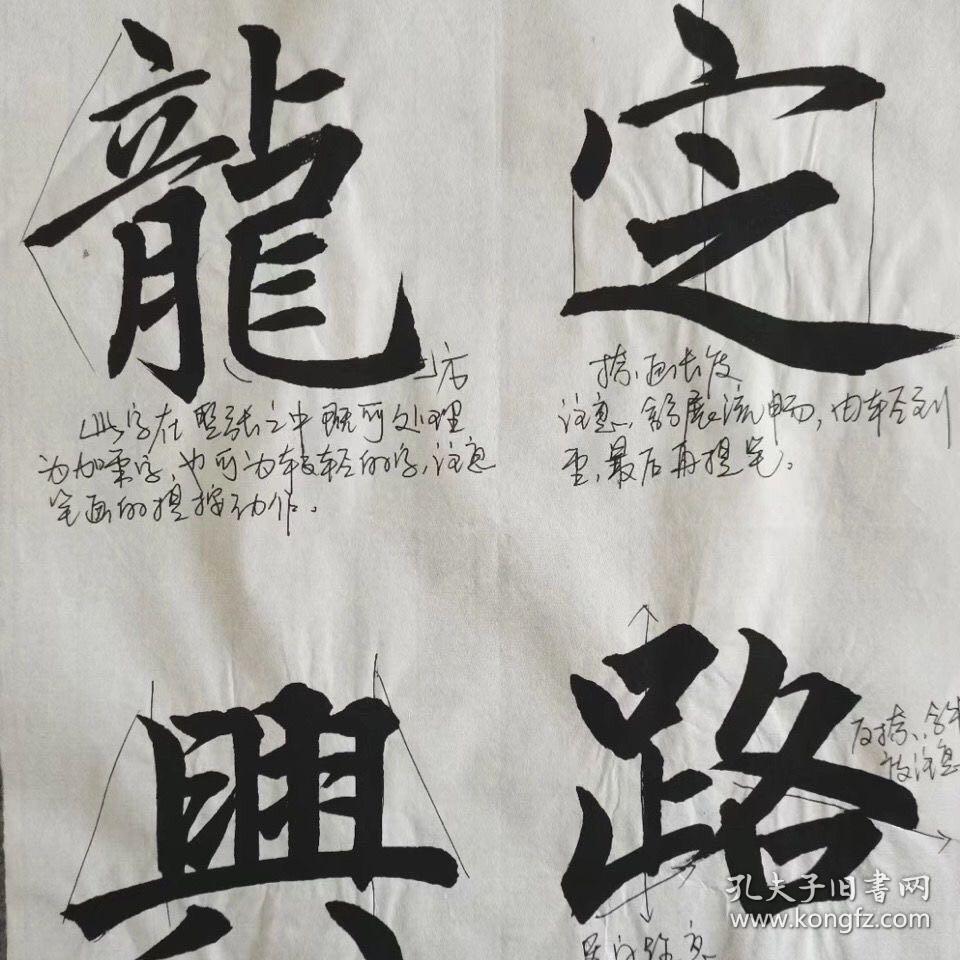 龍 定
方
此字在竖张之中既可处理
为加重字,也可为较轻的字,注意
笔画的提按动作。
捺画长度
注意、舒展流畅,由轻到
重,最后再提笔。
興 路
反捺、
注意
孔夫子旧書网
www.kongfz.com